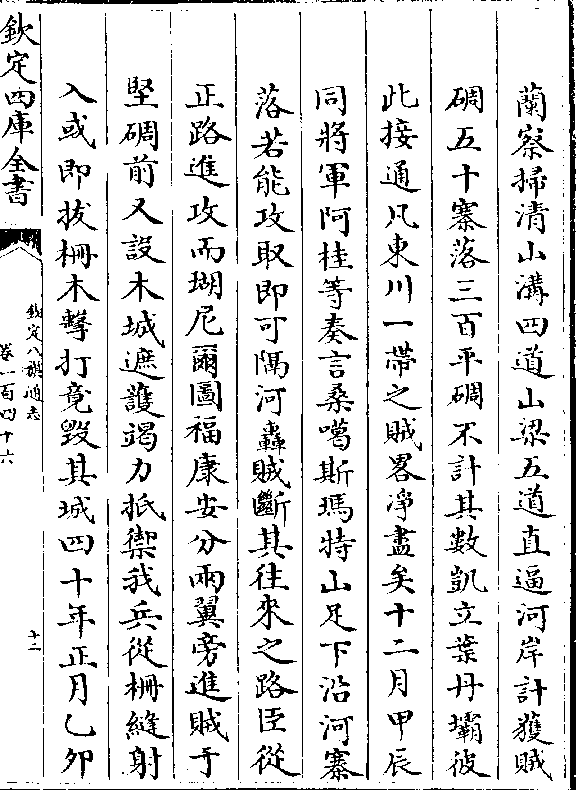 蘭察掃清山溝四道山梁五道直逼河岸計獲賊
碉五十寨落三百平碉不計其數凱立葉丹壩彼
此接通凡東川一帶之賊畧淨盡矣十二月甲辰
同將軍阿桂等奏言桑噶斯瑪特山足下沿河寨
落若能攻取即可隔河轟賊斷其往來之路臣從
正路進攻而瑚尼爾圖福康安分兩翼旁進賊于
堅碉前又設木城遮護竭力抵禦我兵從柵縫射
入或即拔柵木擊打竟毀其城四十年正月乙卯
欽定四庫全書
欽定八旗通志
卷一百四十六
十二